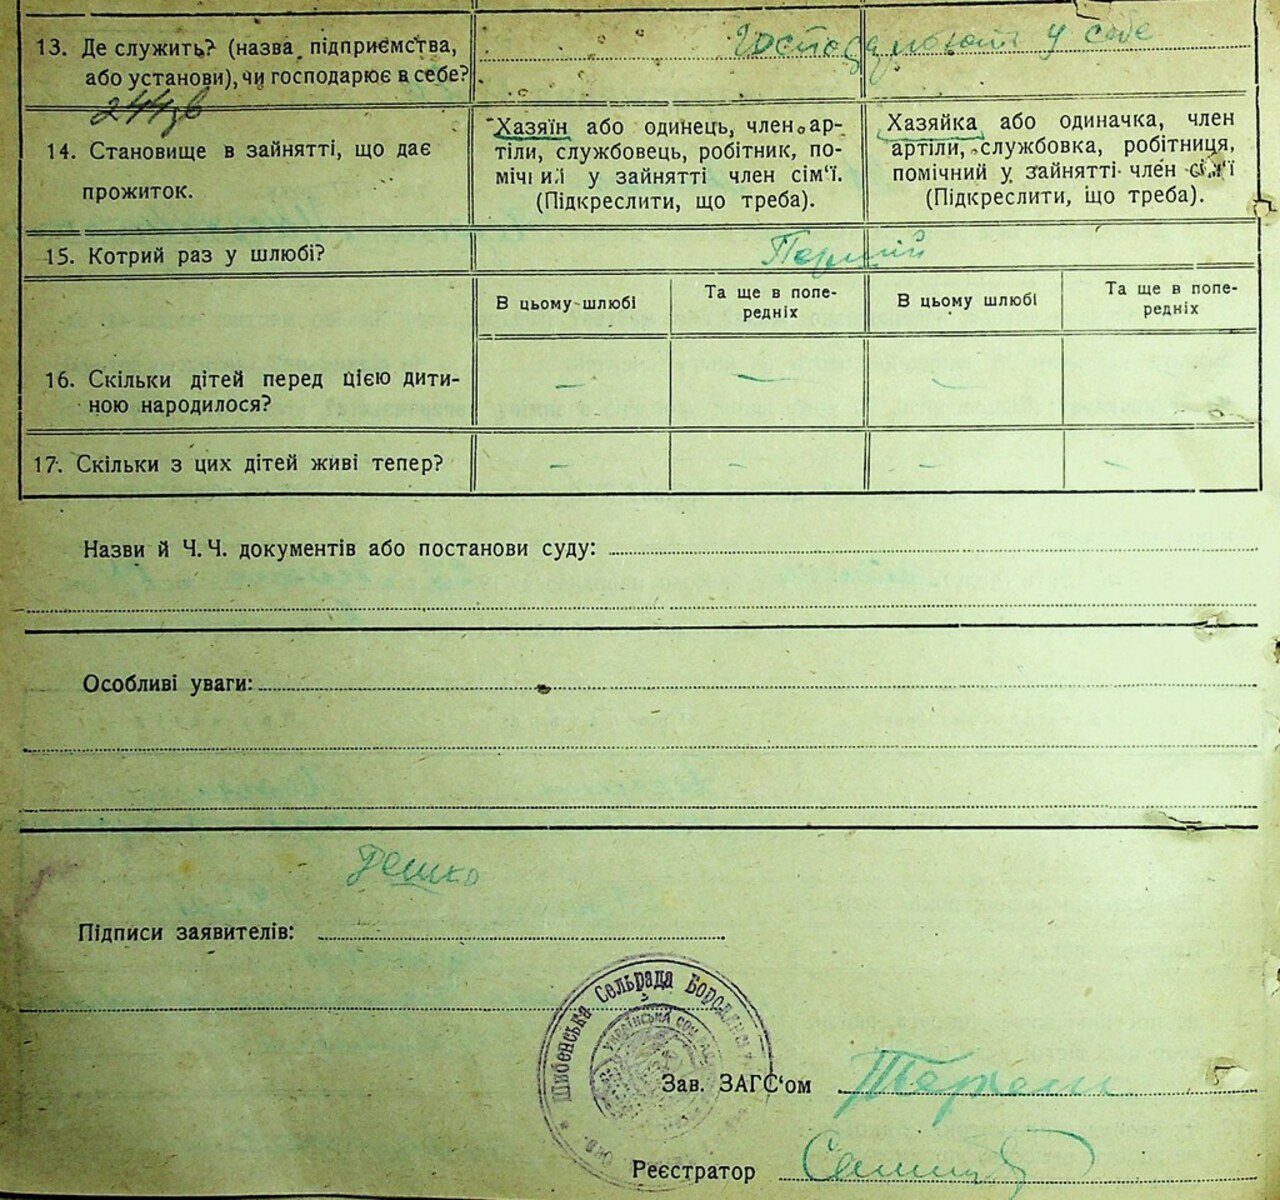 13. Де служить? (назва підприємства,
або установи), чи господарює в себе?
у себе
14. Становище в зайнятті, що дає
прожиток.
Хазяїн або одинець, член ар-
тіли, службовець, робітник, по-
мічний у зайнятті член сім'ї.
(Підкреслити, що треба).
Хазяйка або одиначка, член
артіли, службовка, робітниця,
помічний у зайнятті член сім'ї
(Підкреслити, що треба).
15. Котрий раз у шлюбі?
Перший
В цьому шлюбі
Та ще в попе-
редніх
В цьому шлюбі
Та ще в попе-
редніх
16. Скільки дітей перед цією дити-
ною народилося?
— — — —
17. Скільки з цих дітей живі тепер?
— — — —
Назви й Ч. Ч. документів або постанови суду:
Особливі уваги:
Підписи заявителів:
Сельрада
Зав. ЗАГС'ом
Реєстратор